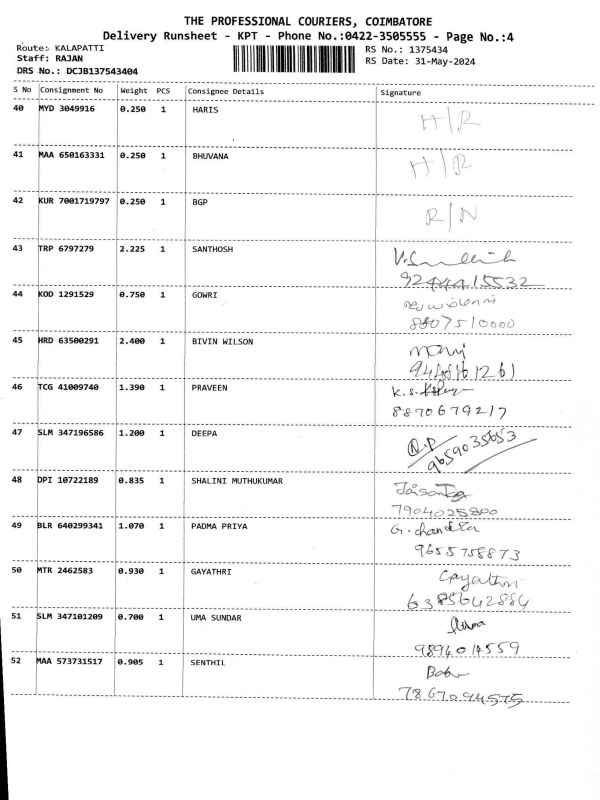 THE PROFESSIONAL COURIERS, COIMBATORE
Delivery Runsheet - KPT - Phone No.:0422-3505555 - Page No.:4
Route: KALAPATTI
RS No.: 1375434
Staff: RAJAN
RS Date: 31-May-2024
DRS No.: DCJB137543404
S No Consignment No Weight PCS Consignee Details Signature
40 MYD 3049916 0.250 1 HARIS H/R
41 MAA 650163331 0.250 1 BHUVANA H/R
42 KUR 7001719797 0.250 1 BGP R/N
43 TRP 6797279 2.225 1 SANTHOSH
9244415532
44 KOD 1291529 0.750 1 GOWRI
8807510000
45 HRD 63500291 2.400 1 BIVIN WILSON Mani
46 TCG 41009740 1.390 1 PRAVEEN K.S.
8870679217
47 SLM 347196586 1.200 1 DEEPA
9659035653
48 DPI 10722189 0.835 1 SHALINI MUTHUKUMAR
7904025800
49 BLR 640299341 1.070 1 PADMA PRIYA G. chandra
9655758873
50 MTR 2462583 0.930 1 GAYATHRI Gayathri
6385642884
51 SLM 347101209 0.700 1 UMA SUNDAR Uma
9894014559
52 MAA 573731517 0.905 1 SENTHIL Babu
7867094575